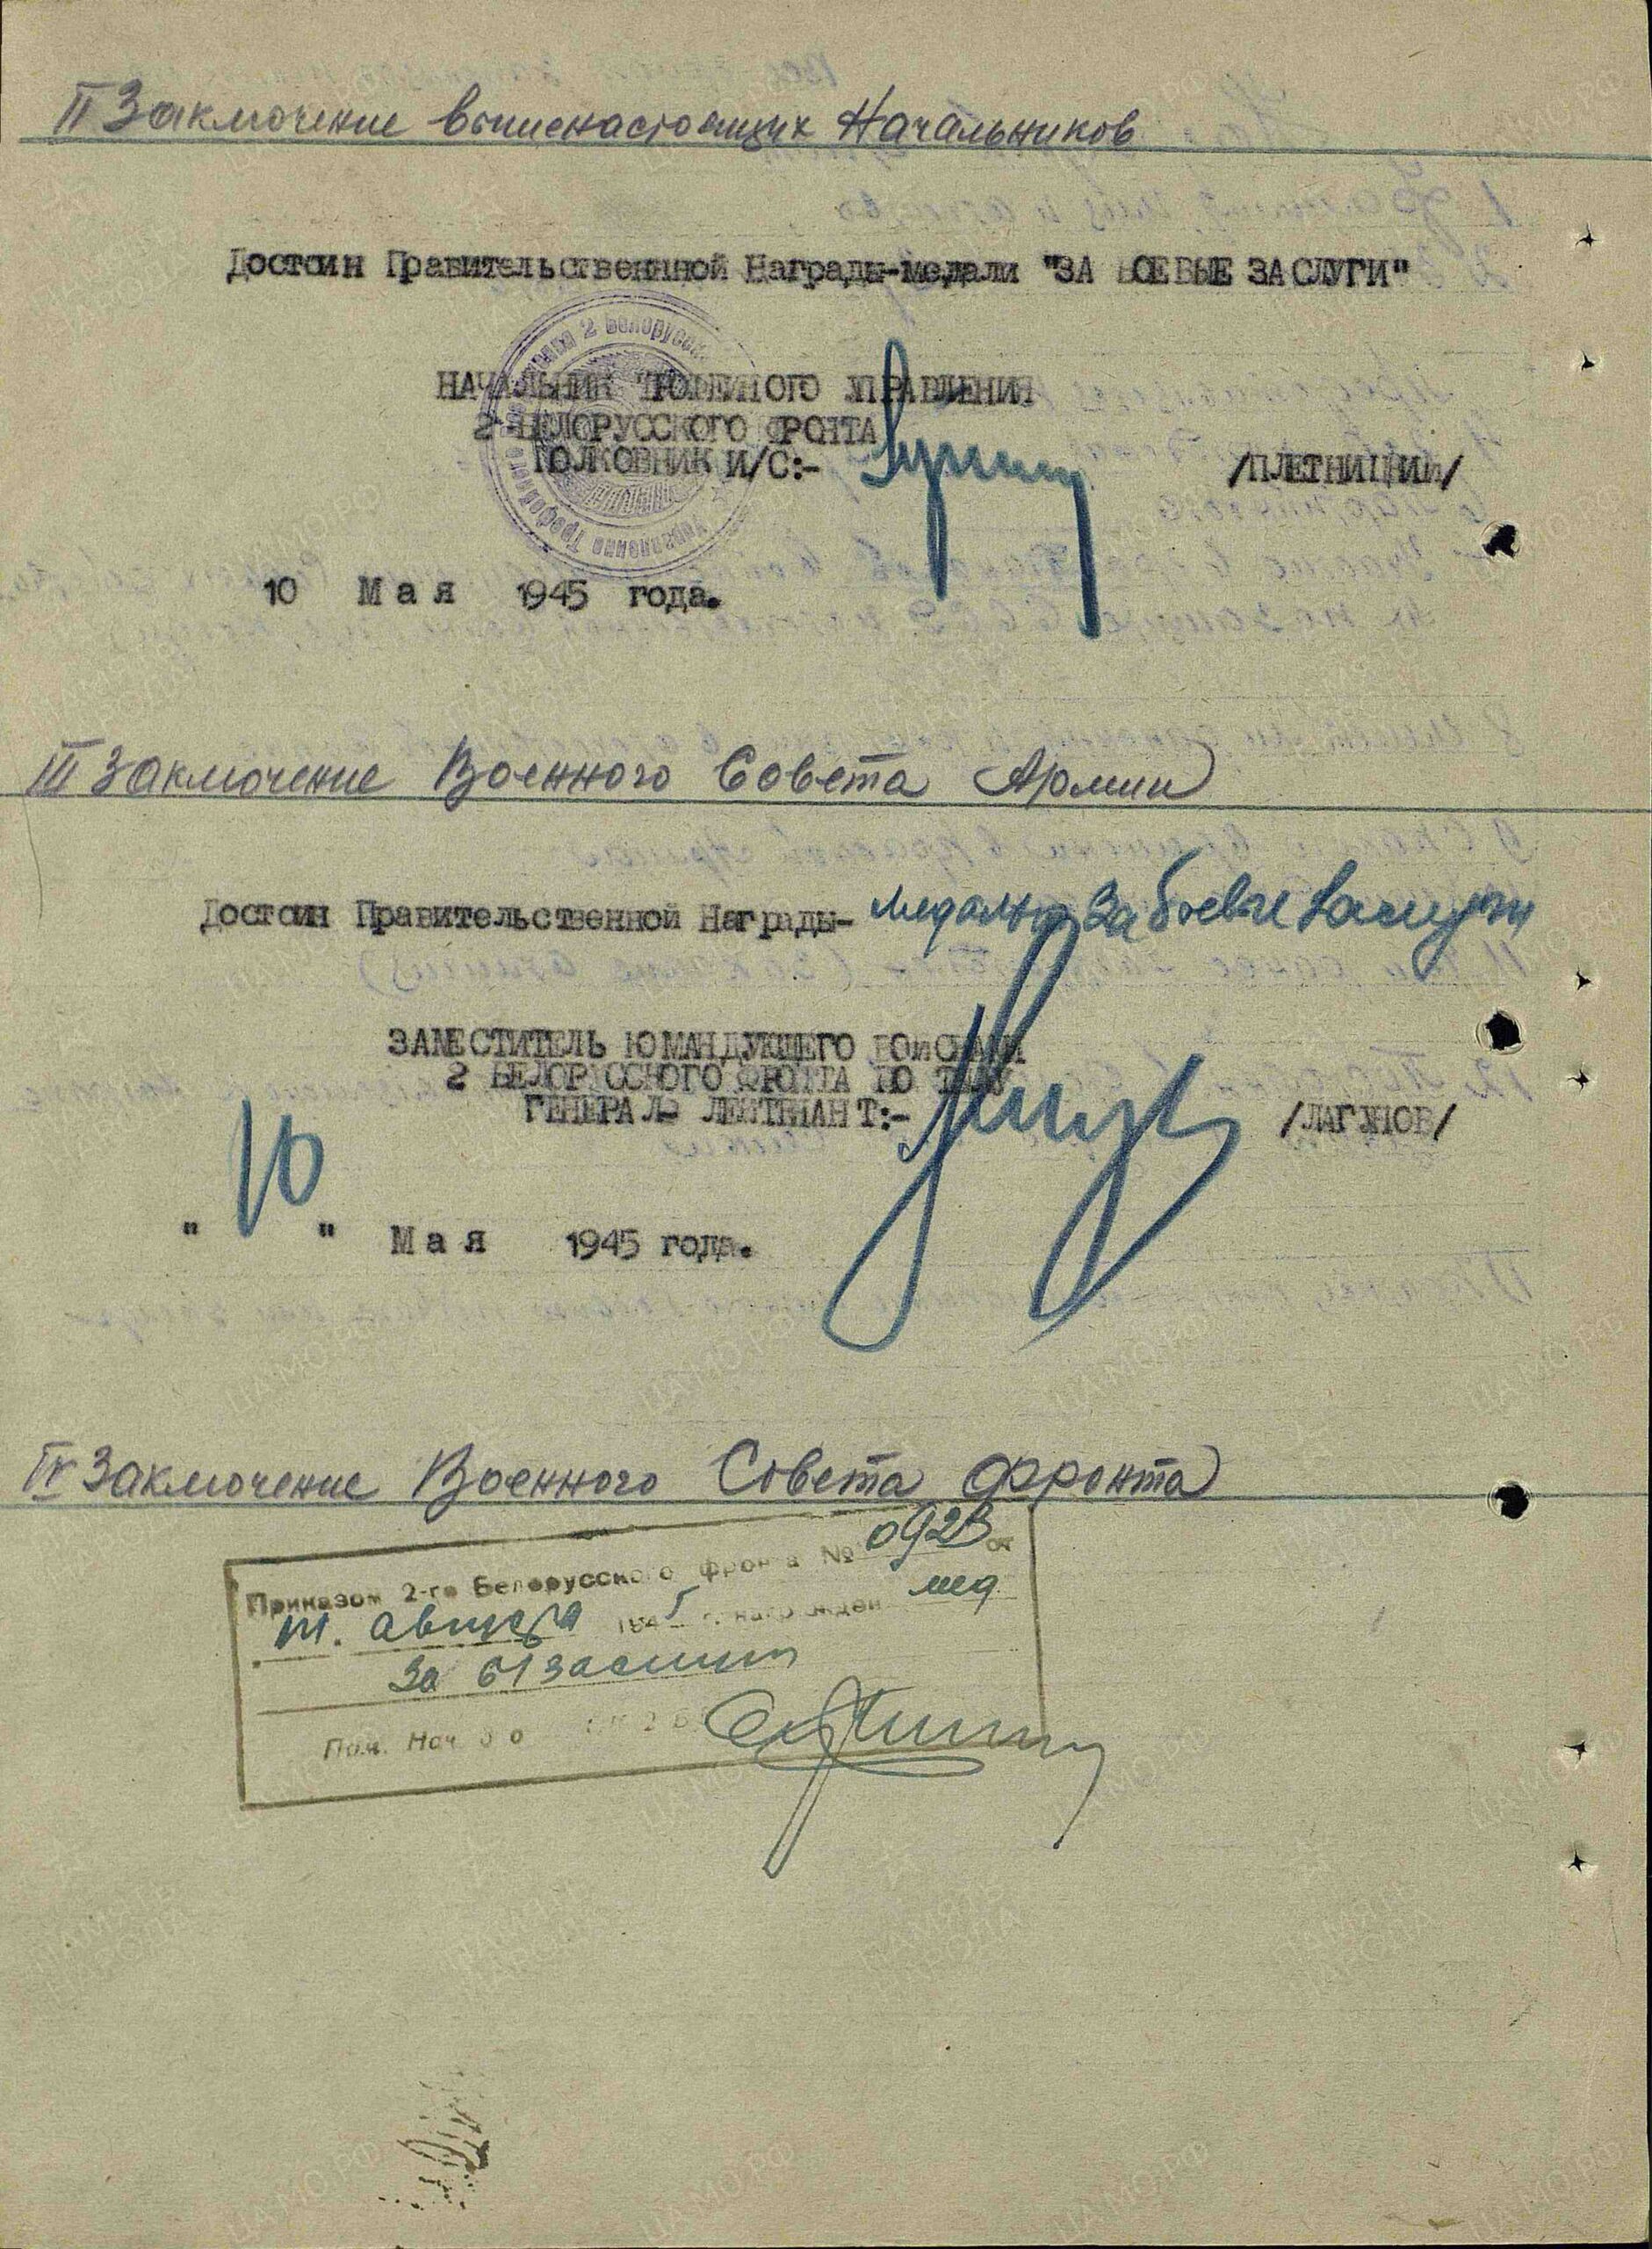 II Заключение вышенастоящих Начальников
Достоин Правительственнной Награды-медали "ЗА БОЕВЫЕ ЗАСЛУГИ"
НАЧАЛЬНИК ТРОФЕЙНОГО УПРАВЛЕНИЯ
2 БЕЛОРУССКОГО ФРОНТА
ПОЛКОВНИК И/С:-
/ПЛЕТНИЦКИЙ/
10 Мая 1945 года.
III Заключение Военного Совета Армии
Достоин Правительственной Награды- медалью За боевые заслуги
ЗАМЕСТИТЕЛЬ КОМАНДУЮЩЕГО ВОЙСКАМИ
2 БЕЛОРУССКОГО ФРОНТА ПО ТЫЛУ
ГЕНЕРАЛ ЛЕЙТЕНАНТ:-
/ЛАГУНОВ/
" 10 " Мая 1945 года.
IV Заключение Военного Совета Фронта
Приказом 2-го Белорусского фронта № от
августа 1945 г. награжден мед
За б/заслуги
Пом. Нач.